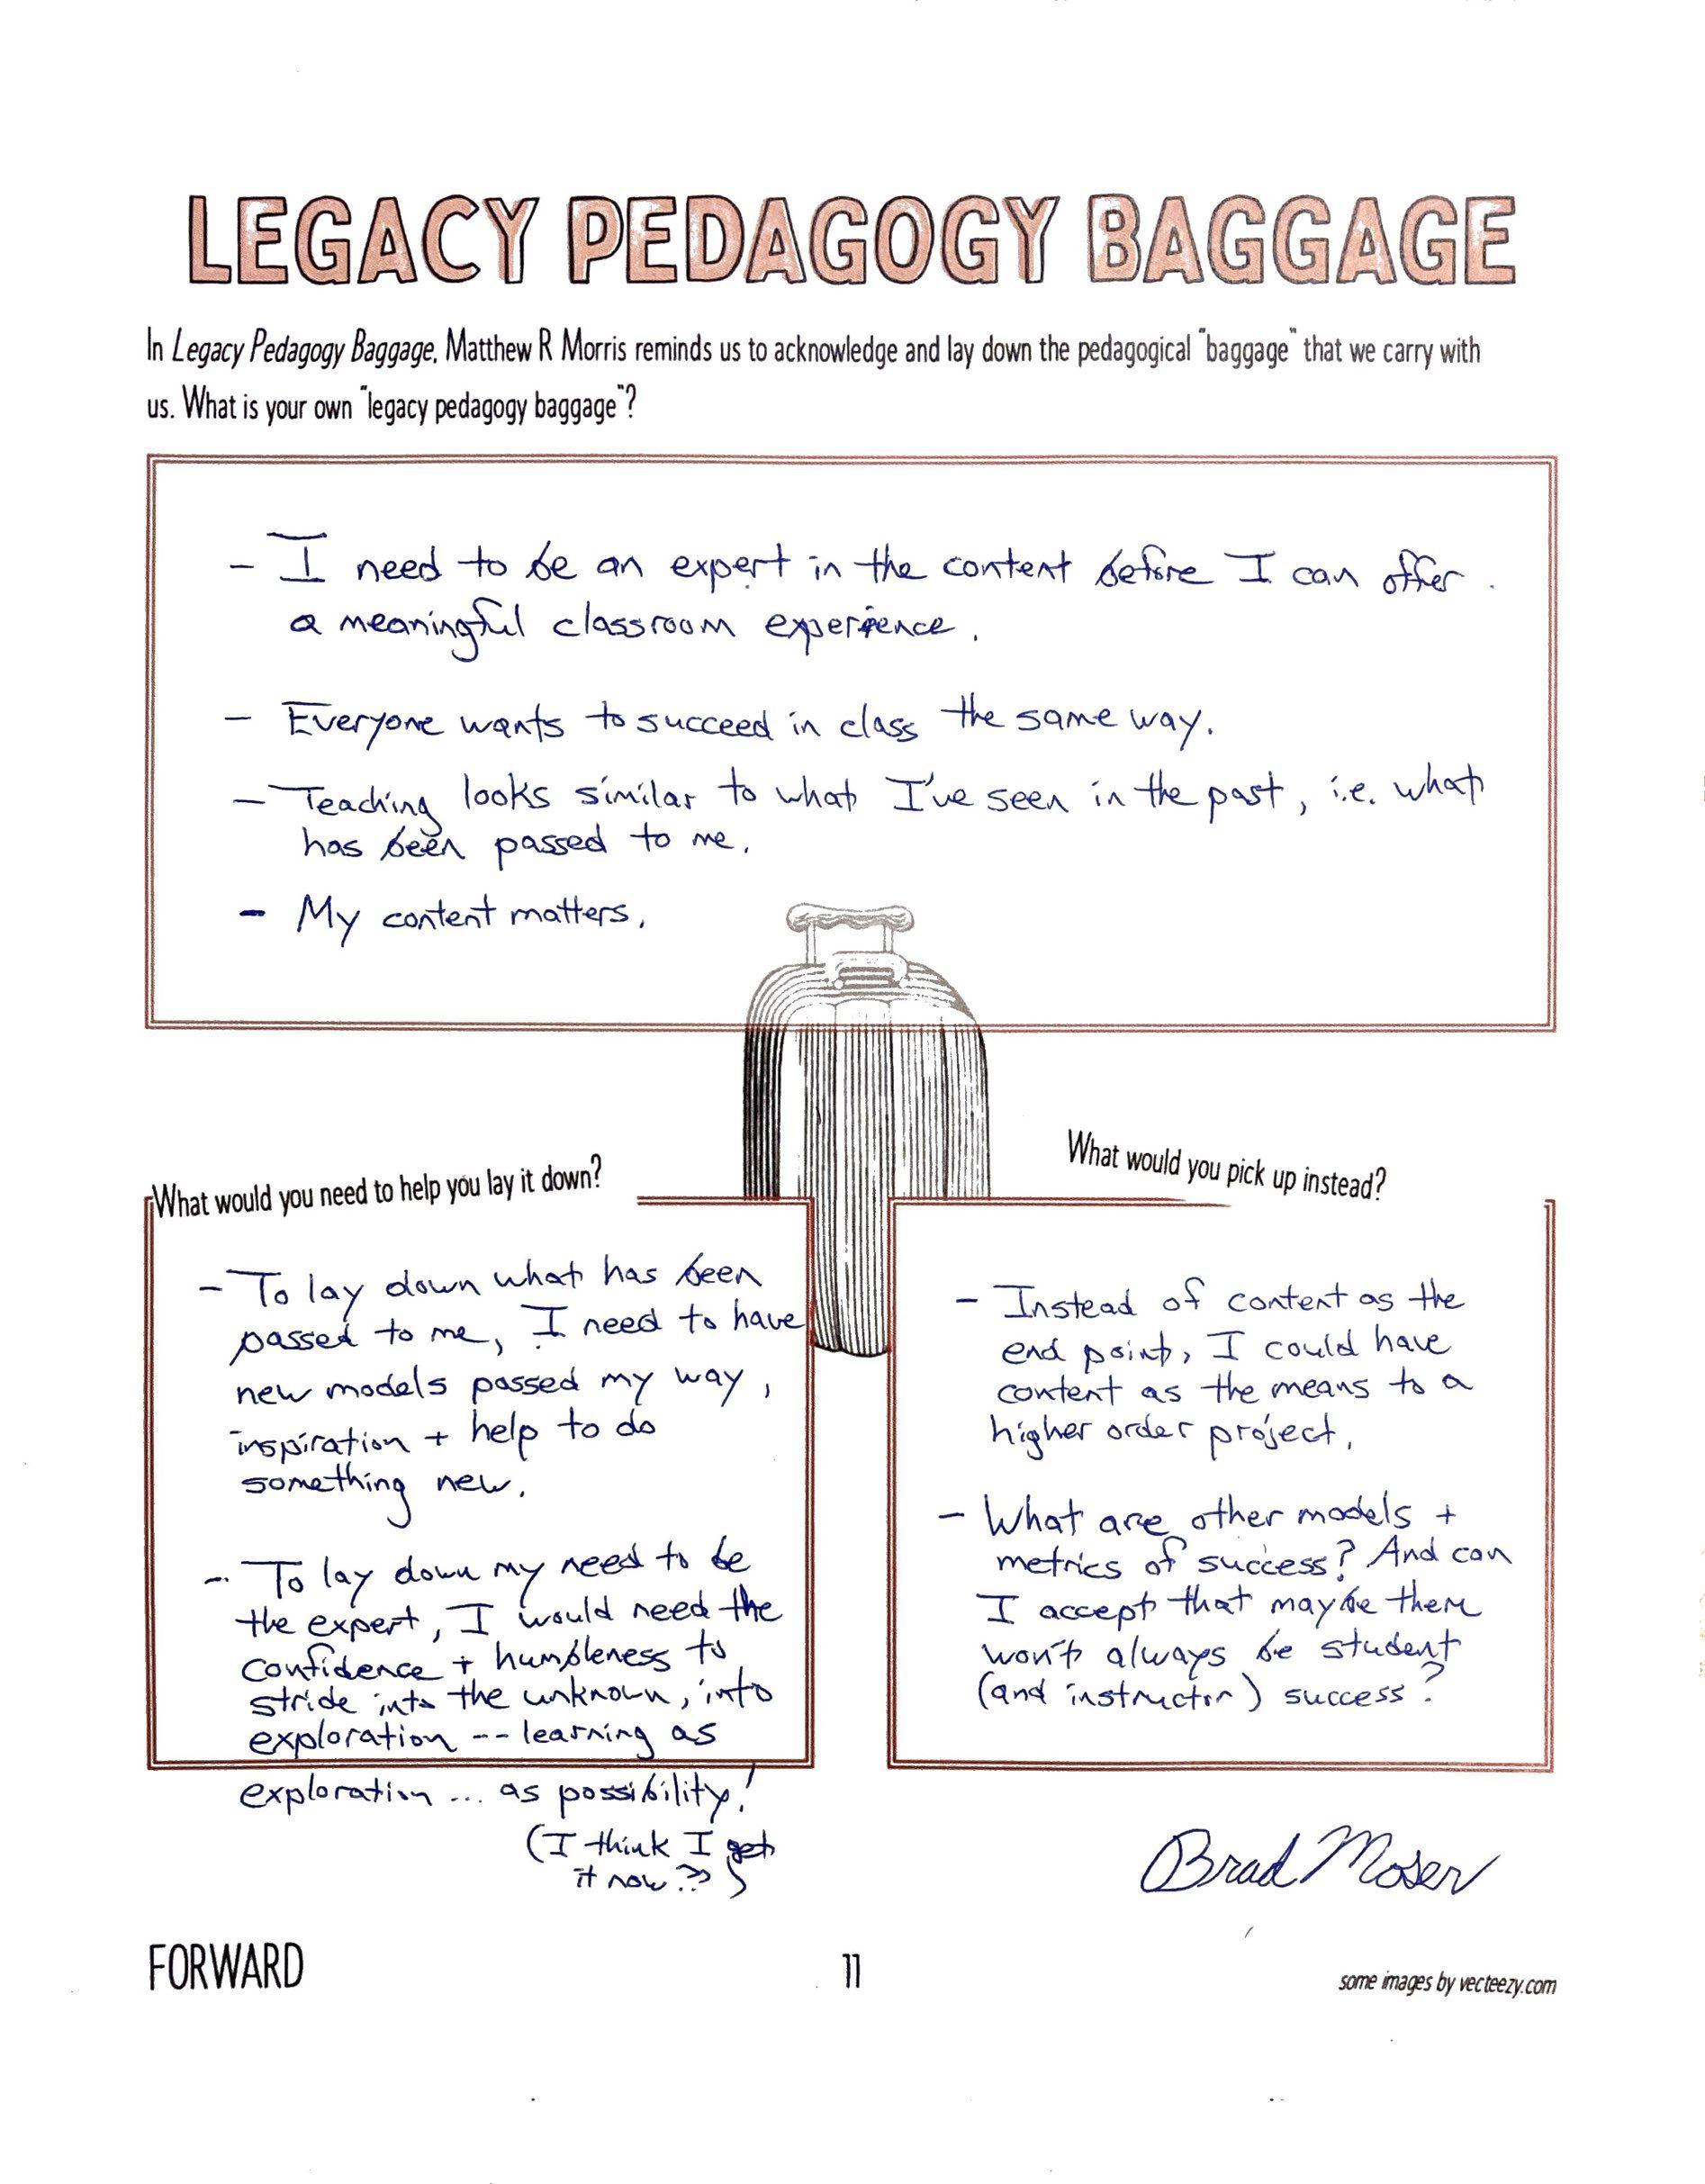 LEGACY PEDAGOGY BAGGAGE
In Legacy Pedagogy Baggage, Matthew R Morris reminds us to acknowledge and lay down the pedagogical "baggage" that we carry with
us. What is your own "legacy pedagogy baggage"?
- I need to be an expert in the content before I can offer
a meaningful classroom experience.
- Everyone wants to succeed in class the same way.
- Teaching looks similar to what I've seen in the past, i.e. what
has been passed to me.
- My content matters.
What would you need to help you lay it down?
- To lay down what has been
passed to me, I need to have
new models passed my way,
inspiration + help to do
something new.
- To lay down my need to be
the expert, I would need the
confidence + humbleness to
stride into the unknown, into
exploration -- learning as
exploration ... as possibility!
(I think I get
it now??)
What would you pick up instead?
- Instead of content as the
end point, I could have
content as the means to a
higher order project.
- What are other models +
metrics of success? And can
I accept that maybe there
won't always be student
(and instructor) success?
Brad Moser
FORWARD
11
some images by vecteezy.com